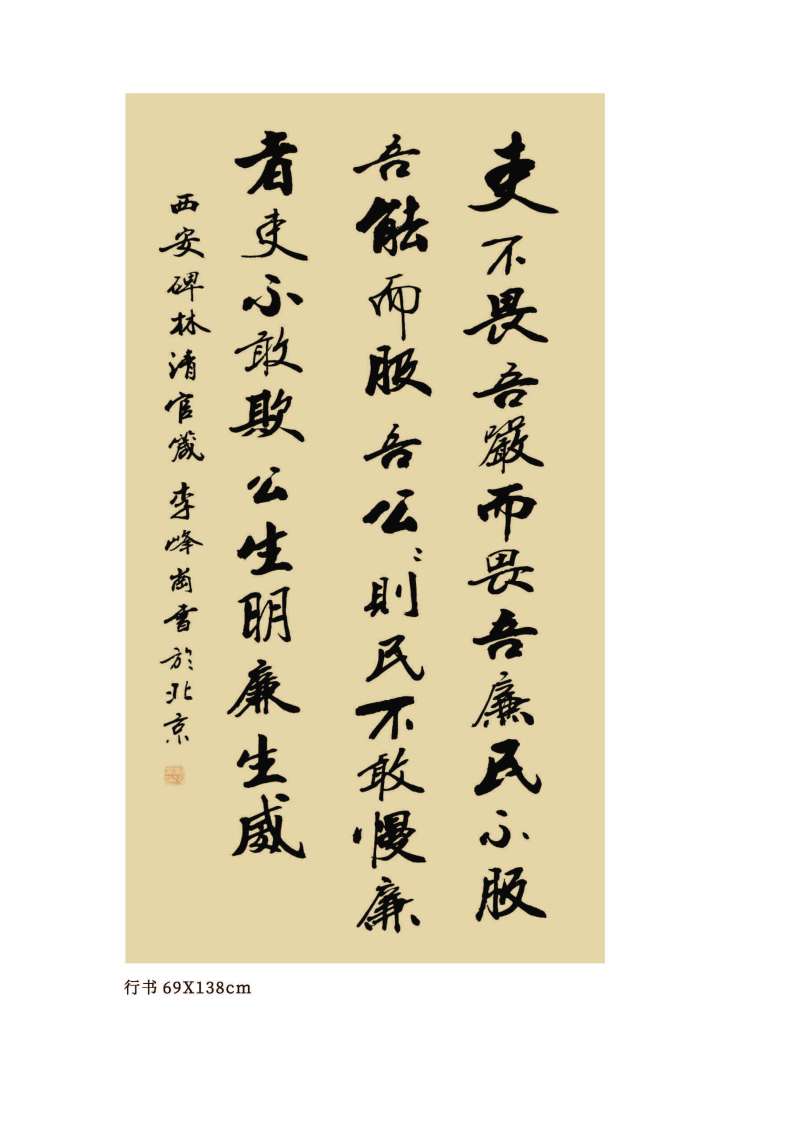 吏不畏吾嚴而畏吾廉民不服
吾能而服吾公〻則民不敢慢廉
者吏不敢欺公生明廉生威
西安碑林清官箴 李峰崗書於北京
行书 69X138cm